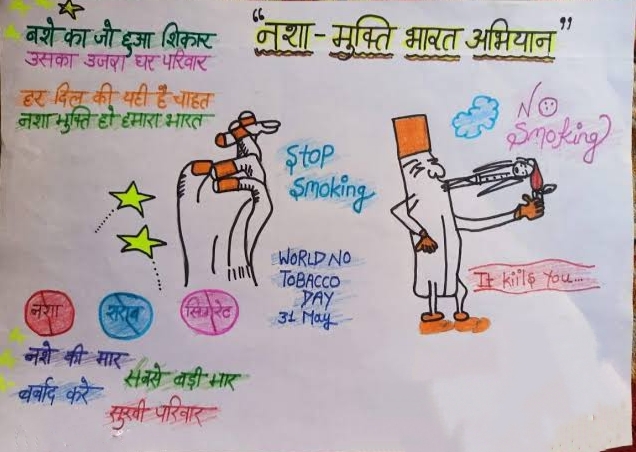 "नशा-मुक्ति भारत अभियान"
नशे का जो हुआ शिकार
उसका उजरा घर परिवार
हर दिल की यही है चाहत
नशा मुक्ति हो हमारा भारत
STOP
Smoking
No
Smoking
WORLD NO
TOBACCO
DAY
31 May
It kills You...
नशा
शराब
सिगरेट
नशे की मार
सबसे बड़ी मार
बर्बाद करे
सुखी परिवार